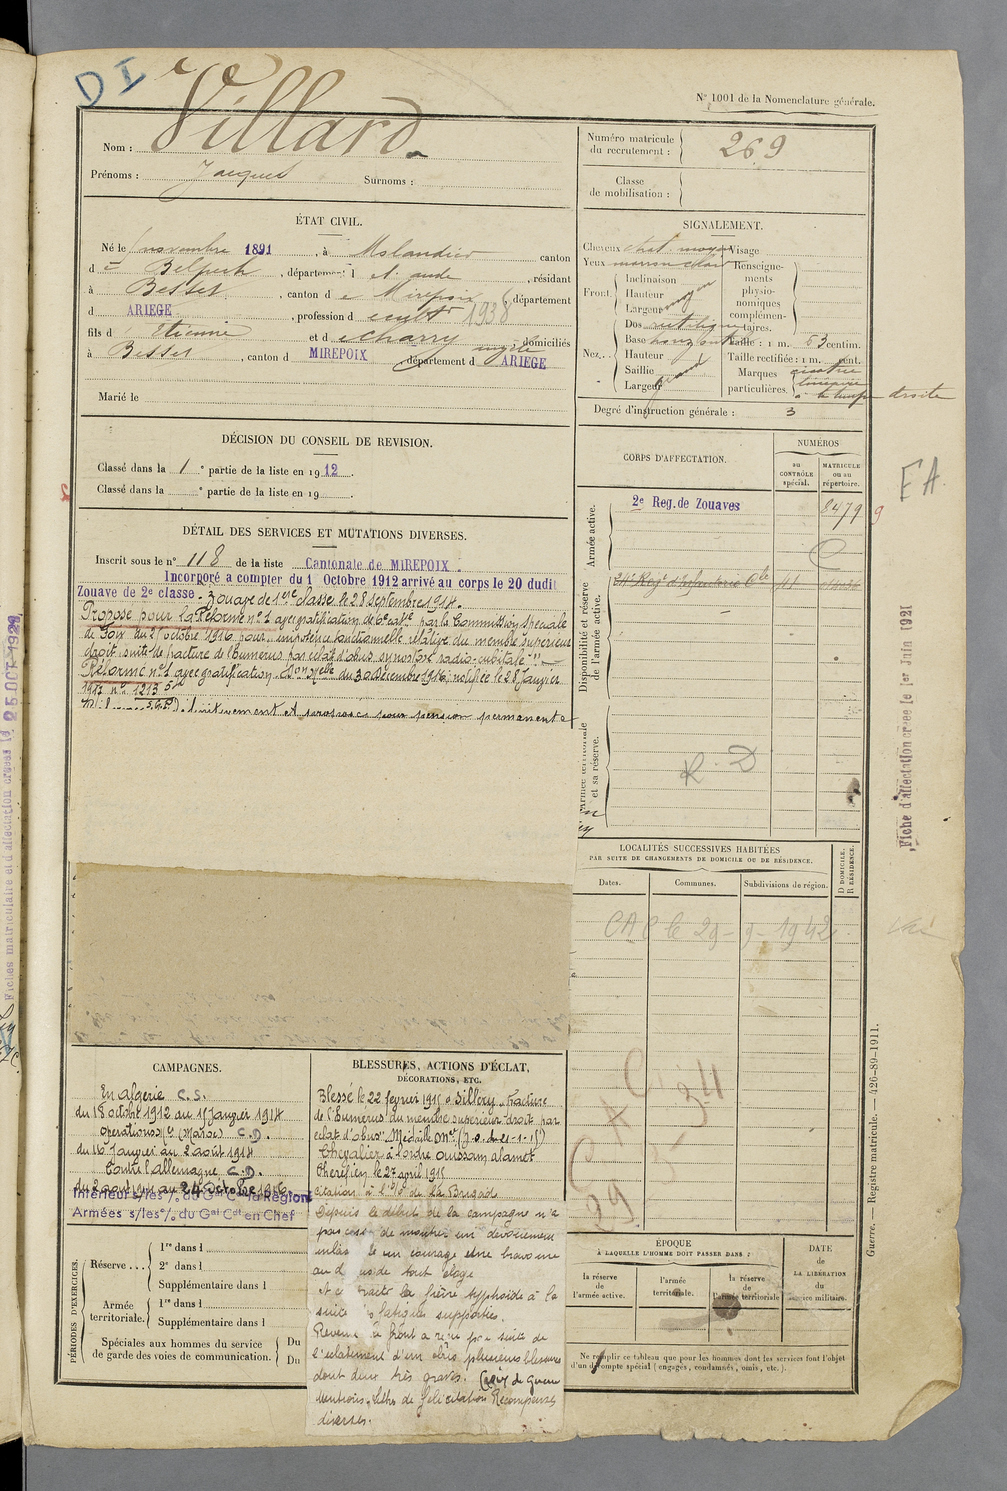 D I
Villard
N° 1001 de la Nomenclature générale.
Nom :
Prénoms : Jacques Surnoms :
Numéro matricule du recrutement : 269
Classe de mobilisation :
ÉTAT CIVIL.
Né le novembre 1891, à Molandier canton
d e Belpech, département d et aude, résidant
à Besset, canton d e Mirepoix, département
d ARIEGE, profession d cult 1938
fils d Etienne et d echarry domiciliés
à Besset, canton d MIREPOIX département d ARIEGE
Marié le
SIGNALEMENT.
Cheveux chat. moyen Visage
Yeux marron clair Renseigne-
Inclinaison ments
Front. Hauteur moyen physio-
Largeur nomiques
Dos rectiligne complémen-
taires.
Base horizontale Taille : 1 m. 63 centim.
Nez... Hauteur Taille rectifiée : 1 m. cent.
Saillie grand Marques cicatrice
Largeur particulières. linéaire
à la tempe droite
Degré d'instruction générale : 3
DÉCISION DU CONSEIL DE REVISION.
Classé dans la 1e partie de la liste en 1912.
Classé dans la e partie de la liste en 19
DÉTAIL DES SERVICES ET MUTATIONS DIVERSES.
Inscrit sous le n° 118 de la liste Cantonale de MIREPOIX
Incorporé a compter du 1 Octobre 1912 arrivé au corps le 20 dudit
Zouave de 2e classe - Zouave de 1ere classe le 28 septembre 1914.
Propose pour la Réforme n° 1 avec gratification de 6e catie par la Commission speciale
de Foix du 27 octobre 1916 pour "impotence fonctionnelle relative du membre superieur
droit, suite de fracture de l'humerus par eclat d'obus, synostose radio-cubitale"
Réformé n° 1 avec gratification. Don Melle du 30 Décembre 1916, notifiée le 28 Janvier
1917 n° 1213 5e
définitivement et proposé pour pension permanente
CORPS D'AFFECTATION.
NUMÉROS
au CONTRÔLE spécial.
MATRICULE ou au répertoire.
Armée active.
2e Reg. de Zouaves
8479
9
E A.
Disponibilité et réserve de l'armée active.
Régt d'Infanterie Cle
Armée territoriale et sa réserve.
R. D
Fiche d'affectation créée le 1er Juin 1921
Fiches matriculaire et d'affectation créées le 25 OCT 1929
LOCALITÉS SUCCESSIVES HABITÉES
PAR SUITE DE CHANGEMENTS DE DOMICILE OU DE RÉSIDENCE.
Dates. Communes. Subdivisions de région.
D DOMICILE.
R RÉSIDENCE.
CAC le 29-9-1942
C A C
29 5-34
CAMPAGNES.
En algerie C.S.
du 18 octobre 1912 au 15 Janvier 1914
operations (Maroc) C.D.
du 16 Janvier au 2 août 1914
Contre l'allemagne C.D.
du 2 août 1914 au 24 octobre 1916.
Intérieur s/les % du Gal Ct la Région
Armées s/les % du Gal Cdt en Chef
BLESSURES, ACTIONS D'ÉCLAT,
DÉCORATIONS, ETC.
Blessé le 22 fevrier 1915 a Sillery, fracture
de l'humerus du membre superieur droit par
eclat d'obus. Médaille Mre (J.O. du 21-1-15)
Chevalier à l'ordre Ouissam alamet
Cherifien le 27 avril 1915
Citation à l'% de la Brigade
Depuis le début de la campagne n'a
pas cessé de montrer un dévouement
un courage et une bravoure
au d us de tout éloge
la fièvre typhoïde à la
suite fatigues supportées.
Revenu front a reçu par suite de
l'éclatement d'un obus plusieurs blessures
dont deux très graves. Croix de Guerre
lettre de félicitation Récompenses
diverses.
PÉRIODES D'EXERCICES.
Réserve... 1re dans l
2e dans l
Supplémentaire dans l
Armée territoriale. 1re dans l
Supplémentaire dans l
Spéciales aux hommes du service Du
de garde des voies de communication. Du
ÉPOQUE
À LAQUELLE L'HOMME DOIT PASSER DANS :
la réserve de l'armée active.
l'armée territoriale.
la réserve de l'armée territoriale
DATE de LA LIBÉRATION du service militaire.
Ne remplir ce tableau que pour les hommes dont les services font l'objet
d'un décompte spécial (engagés, condamnés, omis, etc.).
Guerre. — Registre matricule. — 426-89-1911.